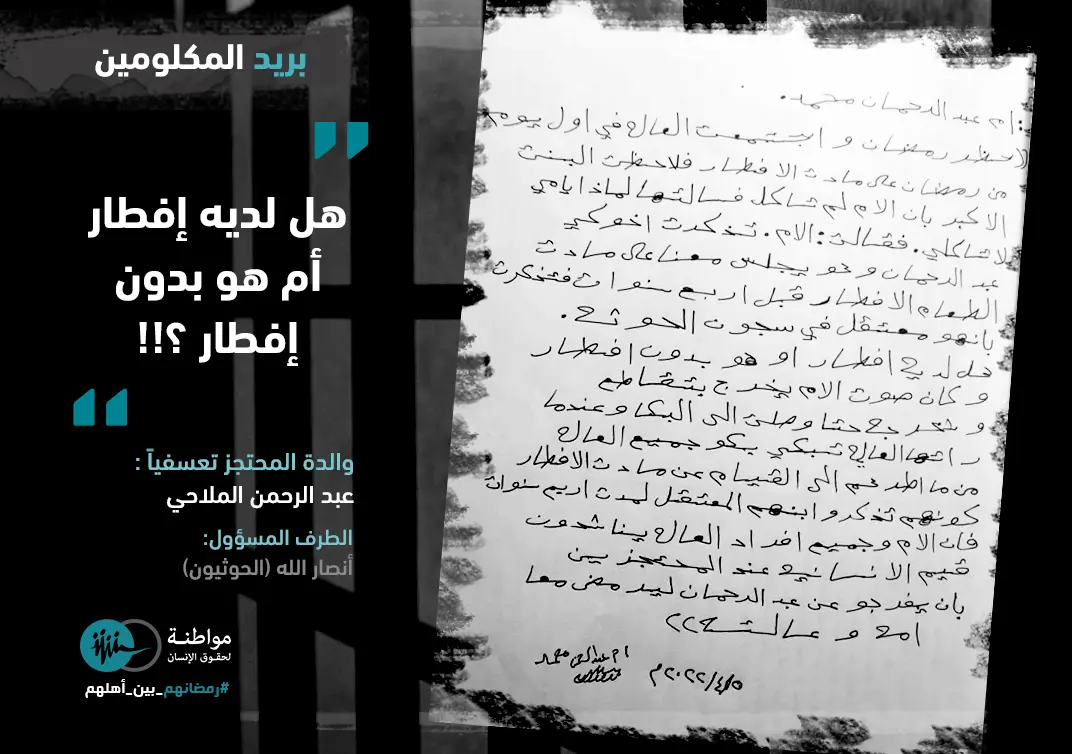 بريد المكلومين
هل لديه إفطار
أم هو بدون
إفطار ؟!!
والدة المحتجز تعسفياً :
عبد الرحمن الملاحي
الطرف المسؤول:
أنصار الله (الحوثيون)
مواطنة
لحقوق الإنسان
#رمضانهم_بين_أهلهم
ام عبد الرحمان محمد.
رمضان و اجتمعت العاله في اول يوم
من رمضان على مادت الافطار فلاحظت البنت
الاكبر بان الام لم تاكل فسالتها لماذا يامي
لاتاكلي. فقالت: الام. تذكرت اخوكي
عبد الرحمان و هو يجلس معنا على مادت
الطعام الافطار قبل اربع سنوات فتذكرت
بانهو معتقل في سجون الحوثي.
هل لديه افطار او هو بدون افطار
و كان صوت الام يخرج بتقاطع
حتا وصلت الى البكا وعندما
راتها العاله تبكي بكو جميع العاله
من ما اطرهم الى القيام من مادت الافطار
كونهم تذكرو ابنهم المعتقل لمدت اربع سنوات
فان الام وجميع افراد العاله يناشدون
قيم الانسانيه عند المحتجزين
بان يفرجو عن عبد الرحمان ليرمضن معا
امه و عالته
ام عبدالرحمن محمد
٢٠٢٢/٤/٥م